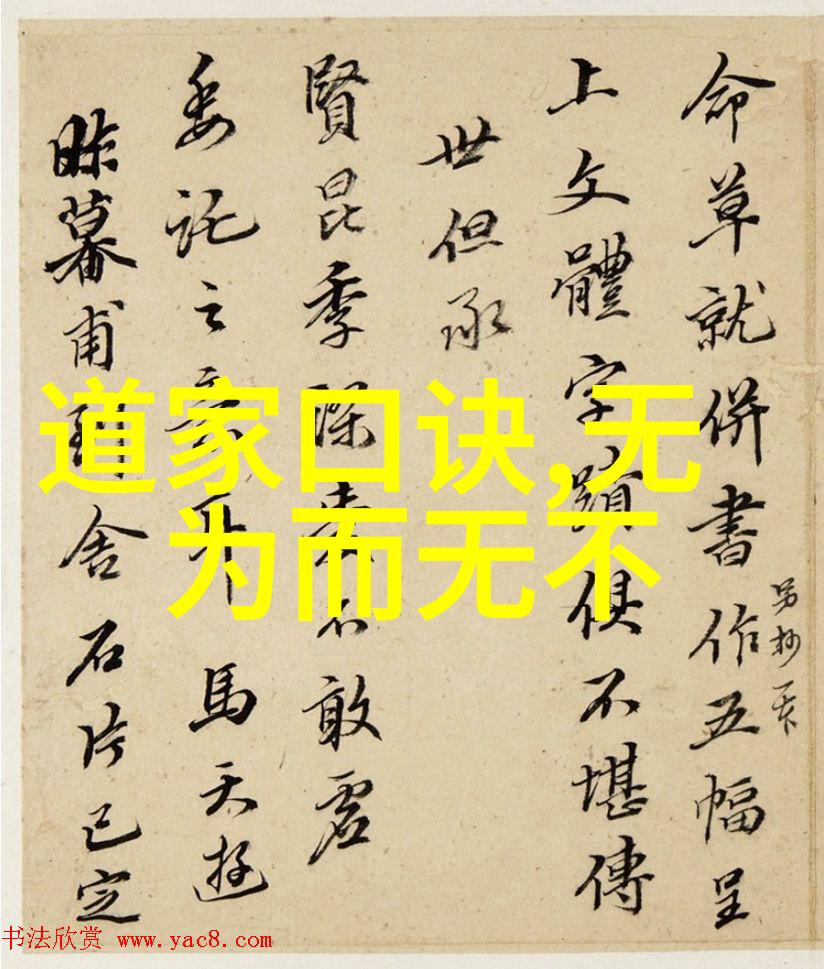 命草就併書作五幅呈
另抄
上文體字蹟俱不堪傳
世但承
賢昆季深不敢虛
委託之意耳 馬天遊
昨暮甫到舍石片已定
道家口诀,无
为而无不
书法欣赏 www.yac8.com